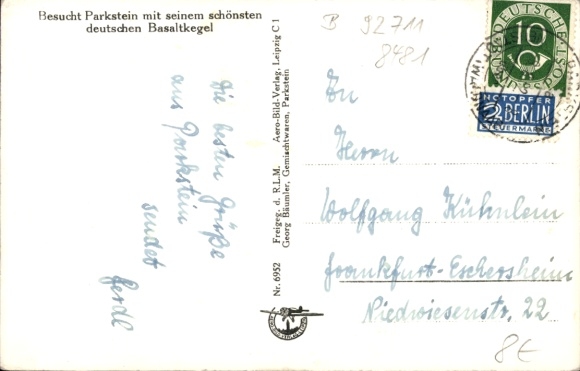 Besucht Parkstein mit seinem schönsten
deutschen Basaltkegel
B 92711
8481
DEUTSCHE POST
10
NOTOPFER
2 BERLIN
STEUERMARKE
Die besten Grüße
aus Parkstein
sendet
Gerdl
Nr. 6952
Freigeg. d. R.L.M.
Aero-Bild-Verlag, Leipzig C 1
Georg Bäumler, Gemischtwaren, Parkstein
An
Herrn
Wolfgang Kühnlein
Frankfurt-Eschersheim
Niedwiesenstr. 22
8€